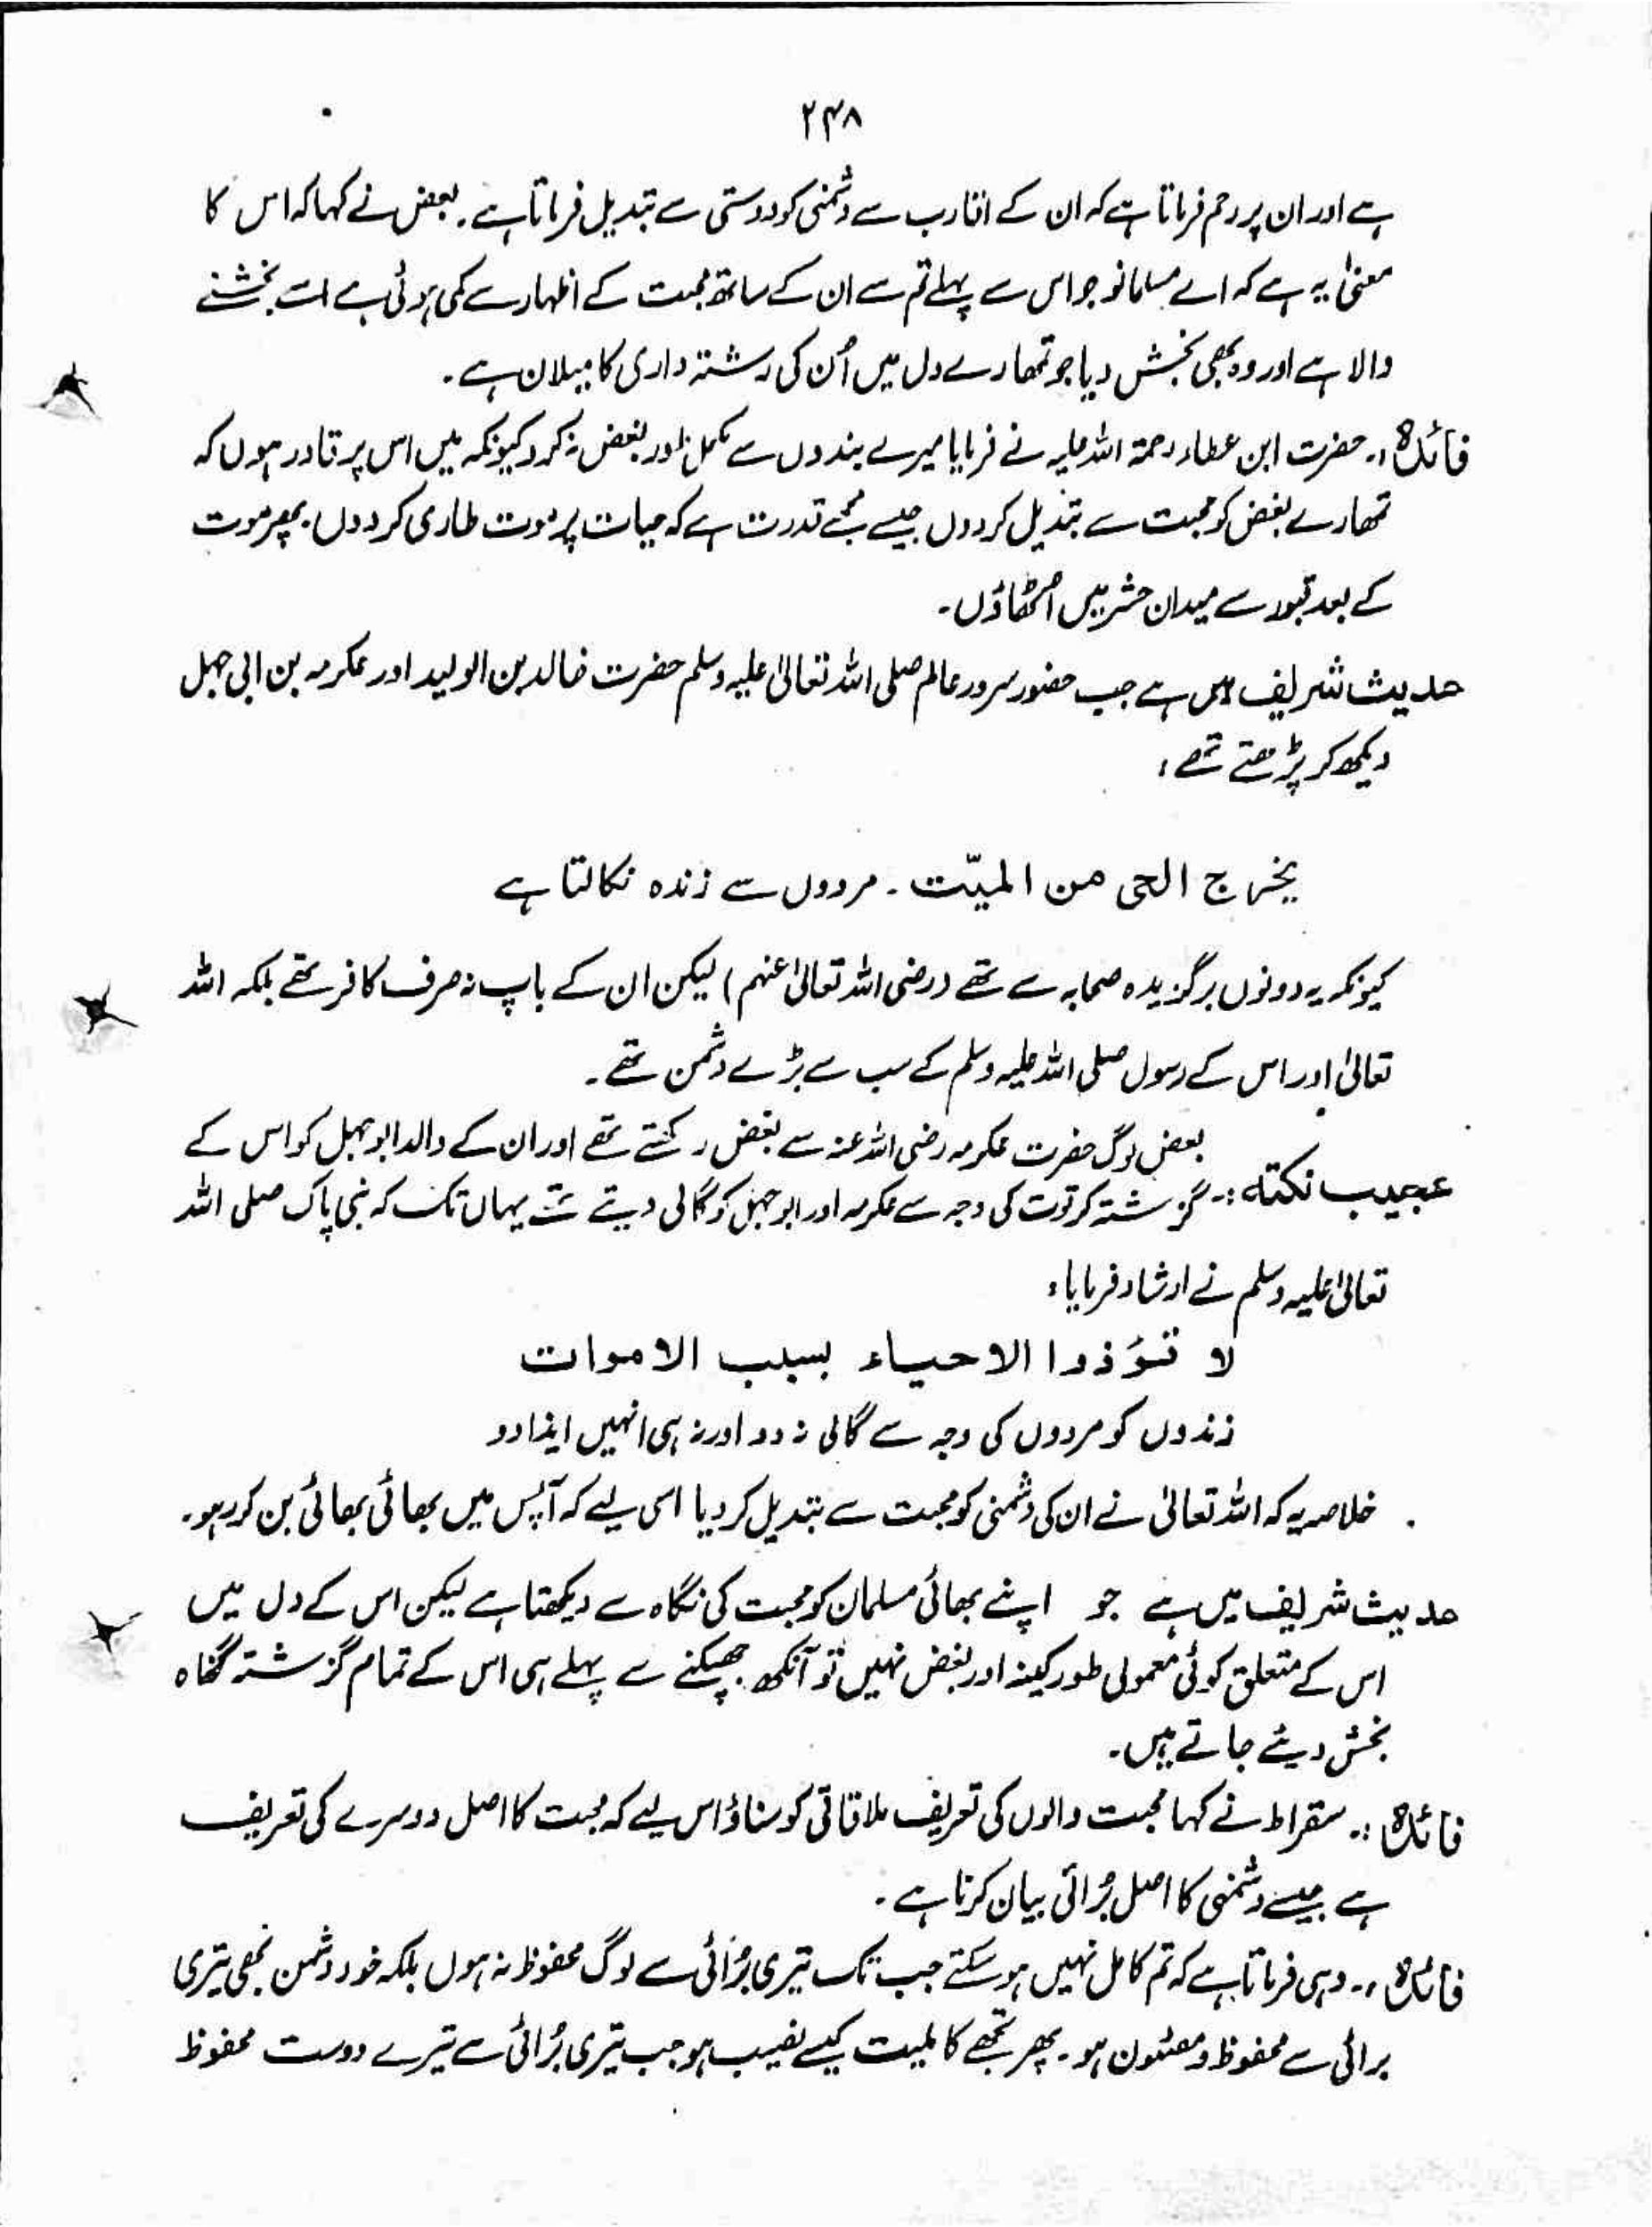 ۲۴۸
ہے اور ان پر رحم فرماتا ہے کہ ان کے اقارب سے دشمنی کو دوستی سے تبدیل فرماتا ہے۔ بعض نے کہا کہ اس کا
معنیٰ یہ ہے کہ اے مسلمانو جو اس سے پہلے تم سے ان کے ساتھ محبت کے اظہار سے کمی ہوئی ہے اسے بخشنے
والا ہے اور وہ بھی بخش دیا جو تمھارے دل میں اُن کی رشتہ داری کا میلان ہے۔
فائدہ :۔ حضرت ابن عطاء رحمۃ اللہ علیہ نے فرمایا میرے بندوں سے مکمل طور بغض نہ کرو کیونکہ میں اس پر قادر ہوں کہ
تمھارے بغض کو محبت سے تبدیل کردوں جیسے مجھے قدرت ہے کہ حیات پر موت طاری کردوں۔ پھر موت
کے بعد قبور سے میدان حشر میں اُٹھاؤں۔
حدیث شریف میں ہے جب حضور سرور عالم صلی اللہ تعالیٰ علیہ وسلم حضرت خالد بن الولید اور عکرمہ بن ابی جہل
دیکھ کر پڑھتے تھے :
یخرج الحی من المیّت ۔ مردوں سے زندہ نکالتا ہے
کیونکہ یہ دونوں برگزیدہ صحابہ سے تھے (رضی اللہ تعالیٰ عنہم) لیکن ان کے باپ نہ صرف کافر تھے بلکہ اللہ
تعالیٰ اور اس کے رسول صلی اللہ علیہ وسلم کے سب سے بڑے دشمن تھے۔
بعض لوگ حضرت عکرمہ رضی اللہ عنہ سے بغض رکھتے تھے اور ان کے والد ابو جہل کو اس کے
عجیب نکتہ :۔ گزشتہ کرتوت کی وجہ سے عکرمہ اور ابو جہل کو گالی دیتے تھے یہاں تک کہ نبی پاک صلی اللہ
تعالیٰ علیہ وسلم نے ارشاد فرمایا :
لا تؤذوا الاحیاء بسبب الاموات
زندوں کو مردوں کی وجہ سے گالی نہ دو اور نہ ہی انہیں ایذا دو
خلاصہ یہ کہ اللہ تعالیٰ نے ان کی دشمنی کو محبت سے تبدیل کردیا اسی لیے کہ آپس میں بھائی بھائی بن کر رہو۔
حدیث شریف میں ہے جو اپنے بھائی مسلمان کو محبت کی نگاہ سے دیکھتا ہے لیکن اس کے دل میں
اس کے متعلق کوئی معمولی طور کینہ اور بغض نہیں تو آنکھ جھپکنے سے پہلے ہی اس کے تمام گزشتہ گناہ
بخش دیئے جاتے ہیں۔
فائدہ :۔ سقراط نے کہا محبت والوں کی تعریف ملاقاتی کو سناؤ اس لیے کہ محبت کا اصل دوسرے کی تعریف
ہے جیسے دشمنی کا اصل بُرائی بیان کرنا ہے۔
فائدہ :۔ وہی فرماتا ہے کہ تم کامل نہیں ہو سکتے جب تک تیری بُرائی سے لوگ محفوظ نہ ہوں بلکہ خود دشمن بھی تیری
برائی سے محفوظ و مصئون ہو۔ پھر تجھے کاملیت کیسے نصیب ہو جب تیری بُرائی سے تیرے دوست محفوظ